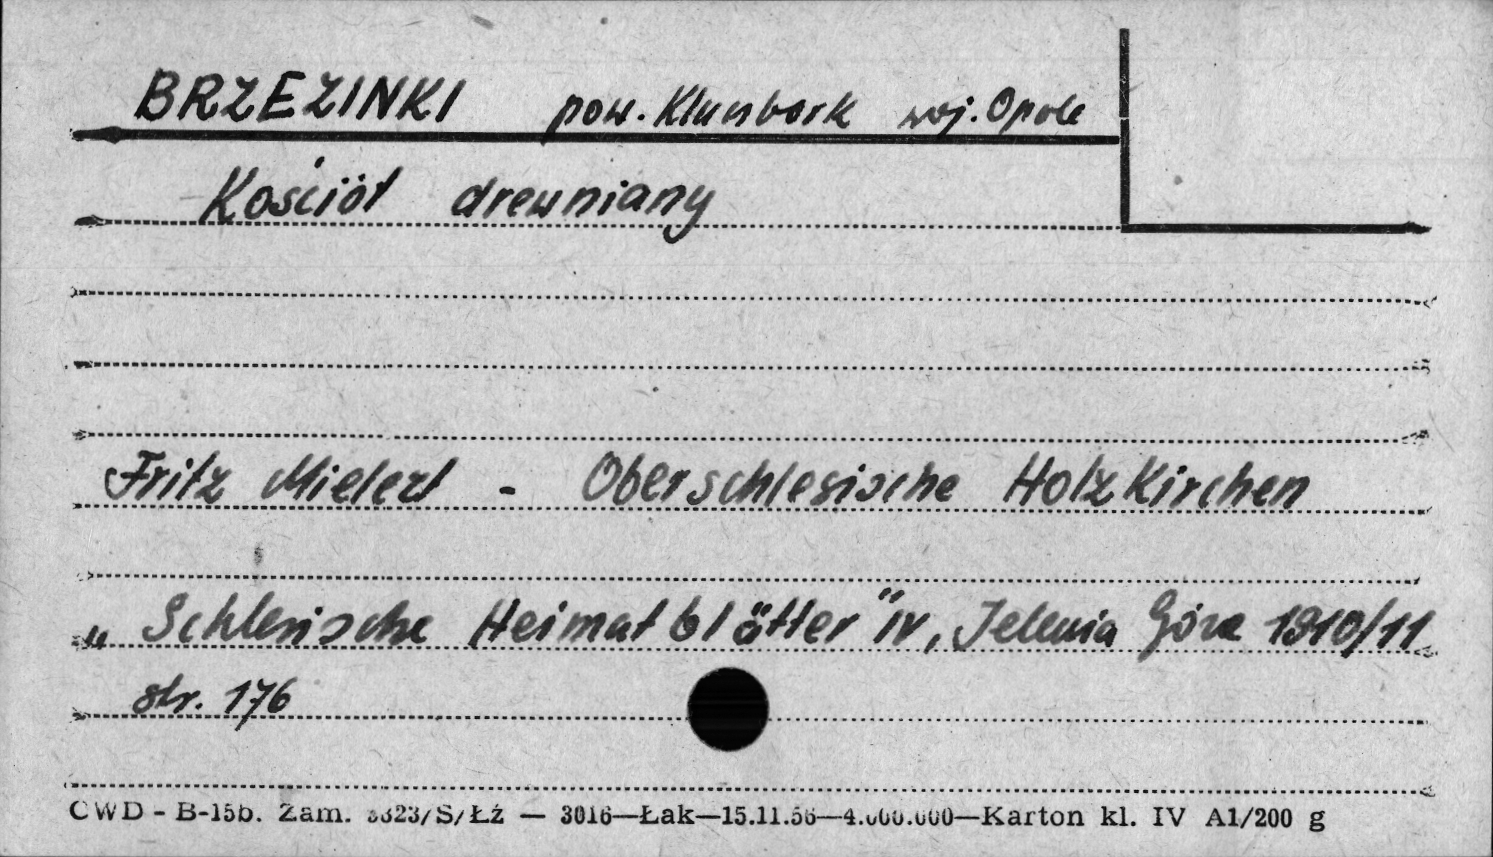 BRZEZINKI pow. Kluczbork woj. Opole
Kościół drewniany
Fritz Mielert - Oberschlesische Holzkirchen
„Schlesische Heimatblätter" IV, Jelenia Góra 1910/11
str. 176
CWD - B-15b. Zam. 3323/S/Łź — 3016—Łak—15.11.56—4.000.000—Karton kl. IV A1/200 g